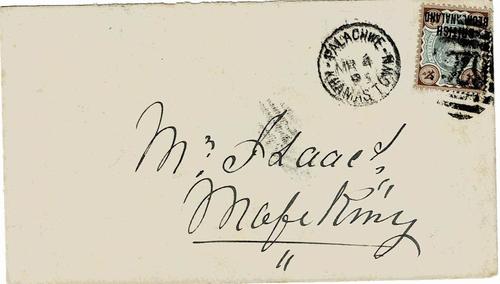 PALACHWE
MR 4
93
KHAMAS TOWN
BRITISH
BECHUANALAND
Mr. Isaacs
Mafeking